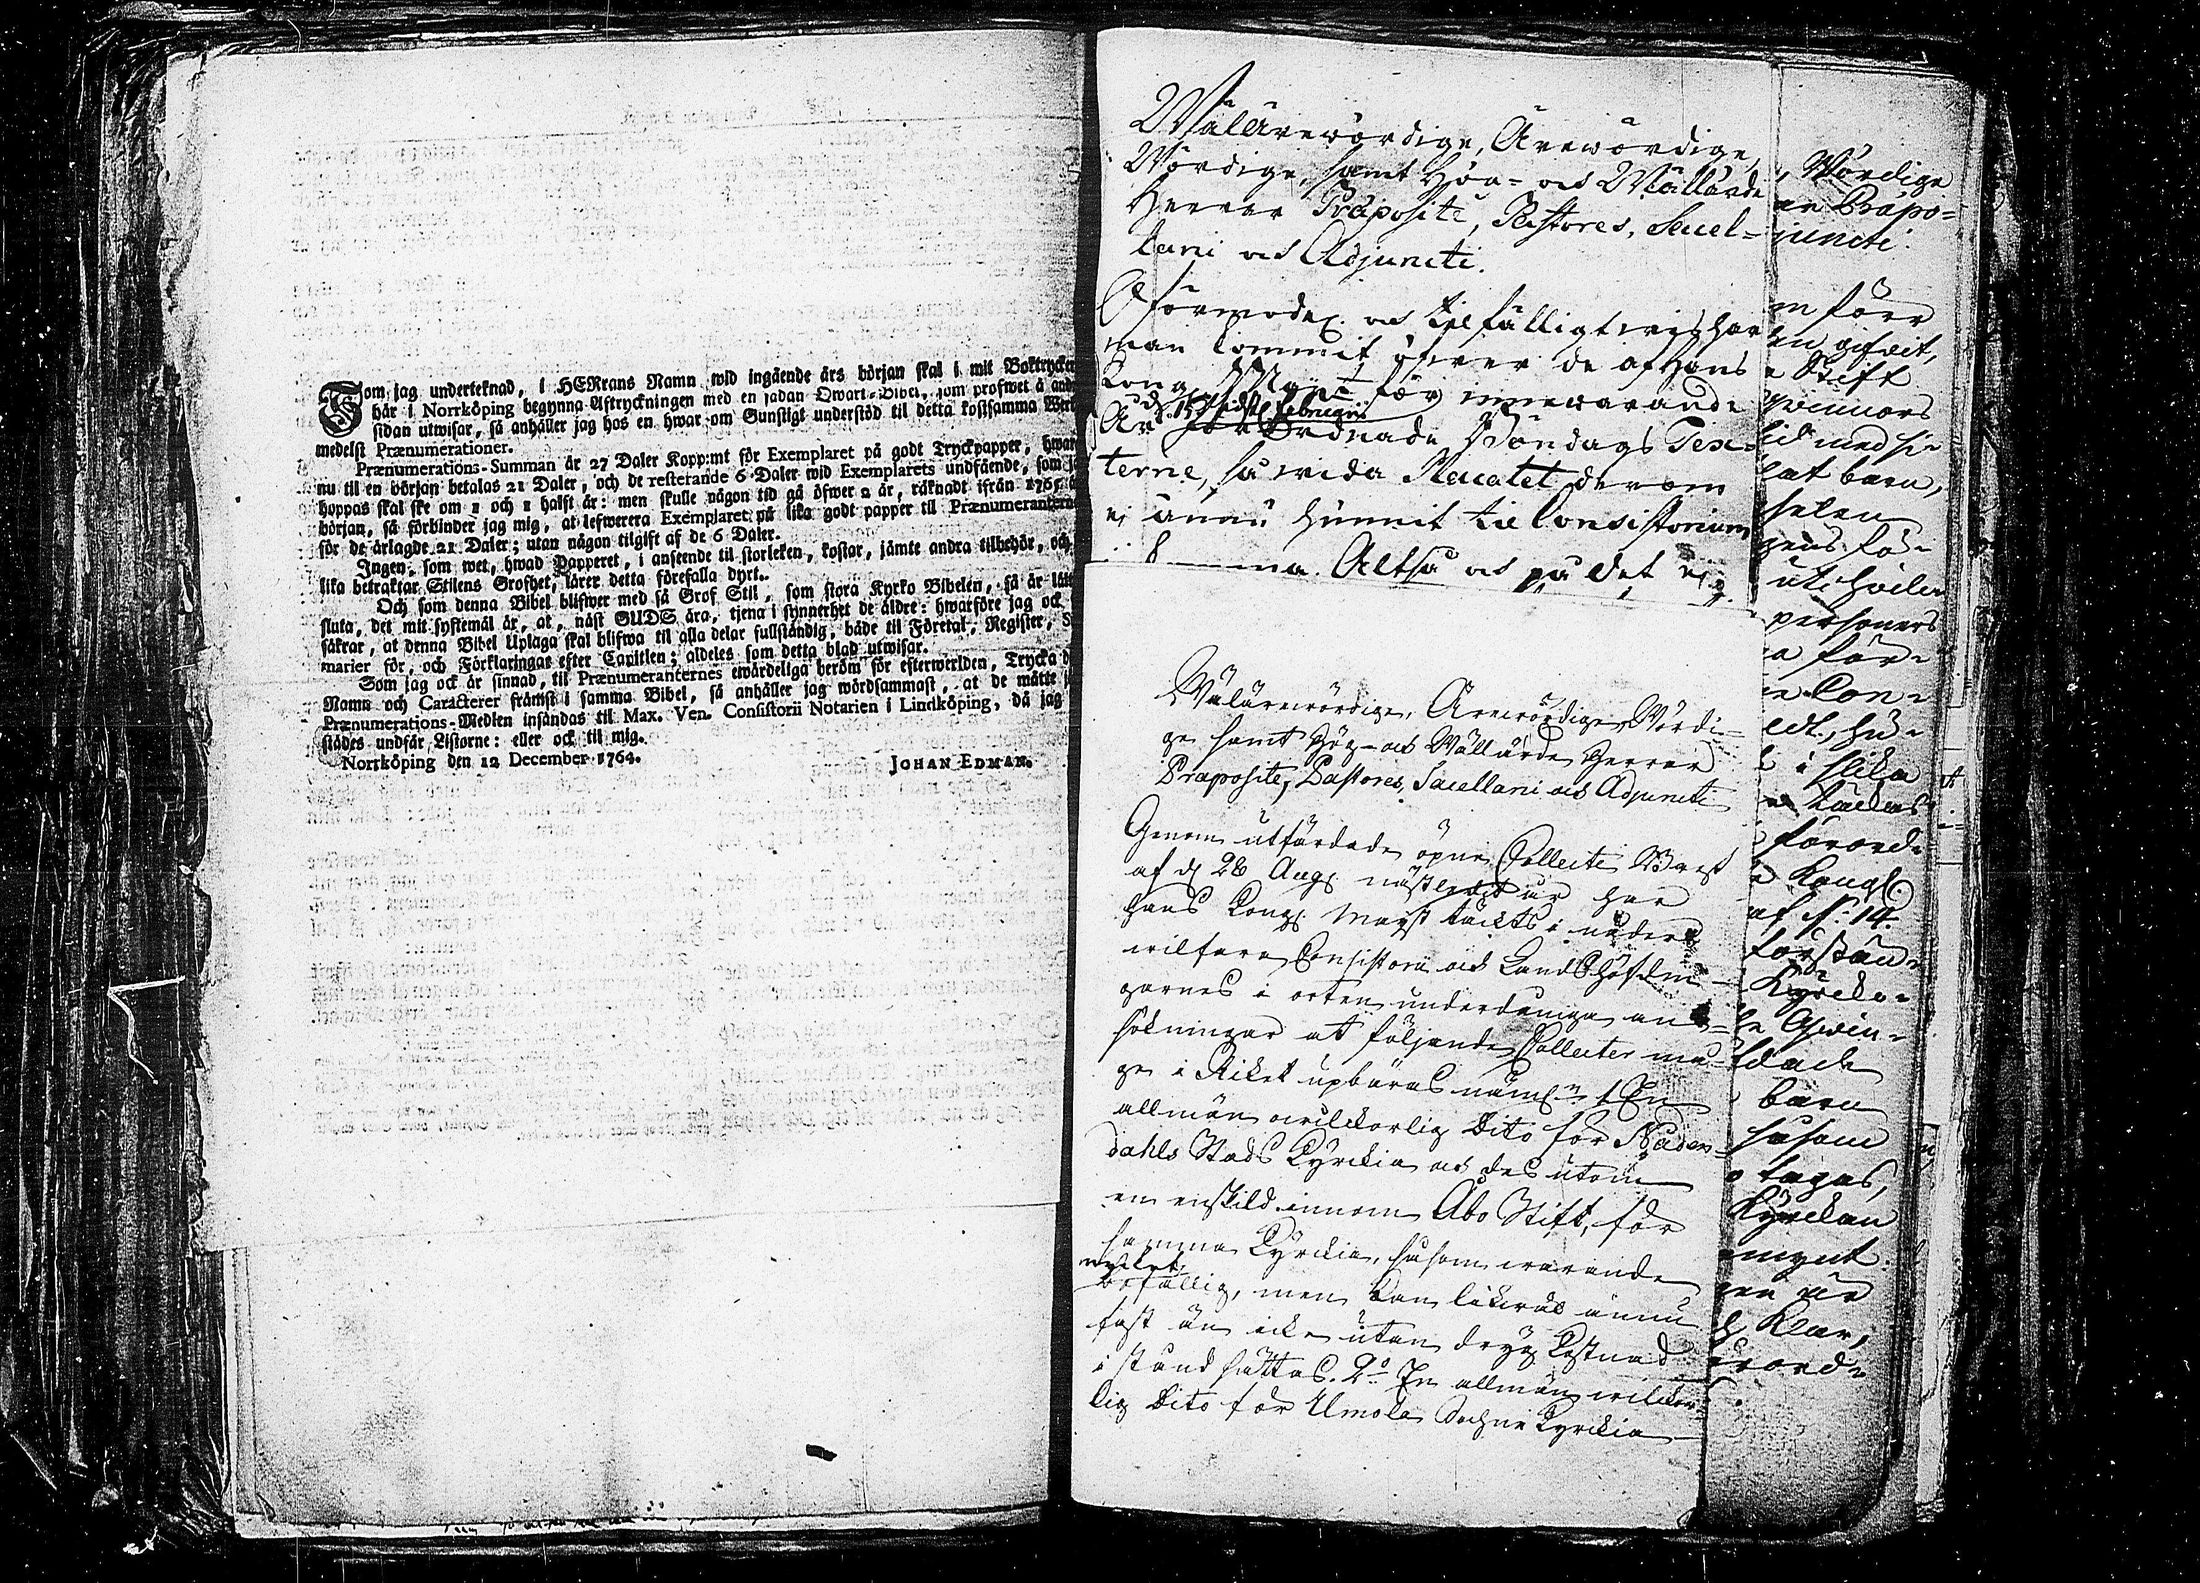 Som jag underteknad, i HERrans Namn wid ingående års början skal i mit Boktrycke
här i Norrköping begynna Aftryckningen med en sådan Qwart-Bibel, som profwet å and
sidan utwisar, så anhåller jag hos en hwar om Gunstigt understöd til detta kostsamma Werk
medelst Prænumerationer.
Prænumerations-Summan är 27 Daler Kopp:mt för Exemplaret på godt Tryckpapper, hwar
nu til en början betalas 21 Daler, och de resterande 6 Daler wid Exemplarets undfående, som j
hoppas skal ske om 1 och 1 halft år: men skulle någon tid gå öfwer 2 år, räknadt ifrån 1765
början, så förbinder jag mig, at lefwerera Exemplaret på lika godt papper til Prænumeranterne
för de ärlagde 21 Daler; utan någon tilgift af de 6 Daler.
Ingen, som wet, hwad Papperet, i anseende til storleken, kostar, jämte andra tilbehör, och
lika betraktar Stilens Grofhet, lärer detta förefalla dyrt.
Och som denna Bibel blifwer med så Grof Stil, som stora Kyrko Bibelen, så är lätt
sluta, det mit syftemål är, at, näst GUDS ära, tjena i synnerhet de äldre: hwarföre jag ock
säkrar, at denna Bibel Uplaga skal blifwa til alla delar fullständig, både til Företal, Register, S
marier för, och Förklaringar efter Capitlen; aldeles som detta blad utwisar.
Som jag ock är sinnad, til Prænumeranternes ewärdeliga beröm för efterwerlden, Trycka d
Namn och Caracterer främst i samma Bibel, så anhåller jag wördsammast, at de måtte j
Prænumerations-Medlen insändas til Max. Ven. Consistorii Notarien i Lindköping, då jag
städes undfår Listorne: eller ock til mig.
Norrköping den 12 December 1764.
JOHAN EDMAN.
Wälärewördige, Ärewördige,
Wördige, samt Hög- och Wällärde
Herrar Præpositi, Pastores, Sacel-
lani och Adjuncti.
Oförmodel. och tilfälligtwis har
man kommit öfwer de af Hans
Kongl. Maj:t för innewarande
År d. 15 sidstl. Februarii förordnade Söndags Tex-
terne, så wida Placatet derom
ej ännu hunnit til Consistorium
Altså och på det
Wälärewördige, Ärewördige, Wördi-
ge samt Hög- och Wällärde Herrar
Præpositi, Pastores, Sacellani och Adjuncti
Genom utfärdade öpne Collecte Bref
af d. 28 Aug. nästledit år har
Hans Kongl. Mayst täckts i nåder
wilfara Consistorii och Landshöfdin-
garnes i orten underdåniga an-
sökningar at följande Collecter må-
ge i Riket upbäras näml:n 1 En
allmän wilckorlig Dito för Nåden-
dahls Stads Kyrckia och des utom
en enskild innom Åbo Stift, för
samma Kyrckia, såsom warande
mycket bofällig, men kan likwäl ännu
fast än icke utan dryg kostnad
i stånd sättas. 2:o En allmän wilckor-
lig Dito för Umola Sochne Kyrckia
, Wördige
er Præpo-
juncti.
m förr
en gifwit,
e Stift
qwinnors
lat barn,
personers
i slika
förord-
e Kongl.
af N:o 14.
förstån-
Kyrcko-
e Qwin-
barn
såsom
tagas,
Kyrckan
en är
Klar,